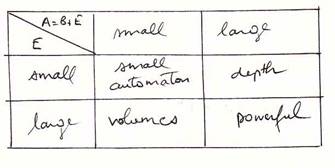 A=B+E small large
E
small small automaton depth
large volumes powerful